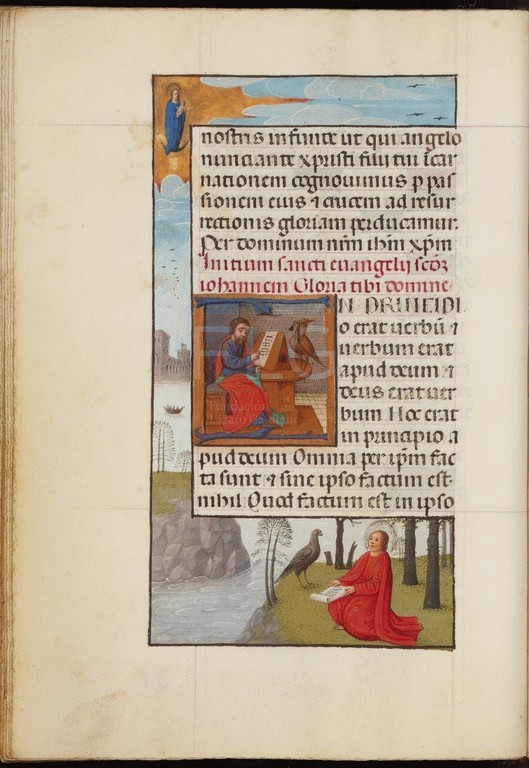 nostris infunde ut qui angelo
nunciante xpristi filij tui īcar
nationem cognouimus p pas
sionem eius ⁊ crucem ad resur
rectionis gloriam perducamur.
Per dominum nr̄m ihm̄ xp̄m
Initium sancti euangelij scd̄ʒ
iohannem Gloria tibi domine
IN PRINCIPI
o erat uerbū ⁊
uerbum erat
apud deum ⁊
deus erat uer
bum Hoc erat
in principio a
pud deum Omnia per ip̄m fac
ta sunt ⁊ sine ipso factum est
nihil Quod factum est in ipso
Fundación
Lázaro Galdiano